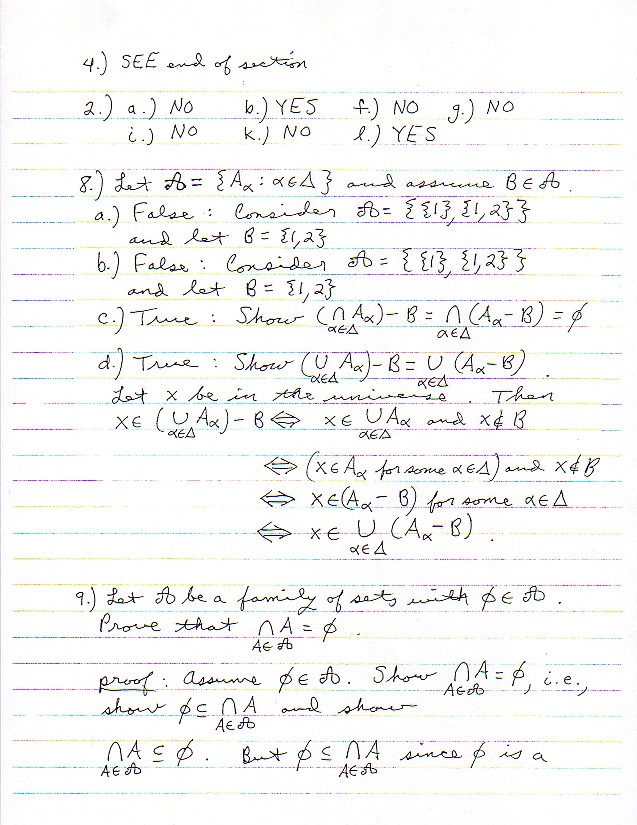 4.) SEE end of section
2.) a.) NO b.) YES f.) NO g.) NO
i.) NO k.) NO l.) YES
8.) Let 𝒜 = {Aα : α∈Δ} and assume B∈𝒜.
a.) False : Consider 𝒜 = {{1}, {1,2}}
and let B = {1,2}
b.) False : Consider 𝒜 = {{1}, {1,2}}
and let B = {1,2}
c.) True : Show (∩_{α∈Δ} Aα) - B = ∩_{α∈Δ} (Aα - B) = ϕ
d.) True : Show (∪_{α∈Δ} Aα) - B = ∪_{α∈Δ} (Aα - B).
Let x be in the universe. Then
x∈ (∪_{α∈Δ} Aα) - B ⟺ x∈ ∪_{α∈Δ} Aα and x∉B
⟺ (x∈Aα for some α∈Δ) and x∉B
⟺ x∈(Aα - B) for some α∈Δ
⟺ x∈ ∪_{α∈Δ} (Aα - B).
9.) Let 𝒜 be a family of sets with ϕ∈𝒜.
Prove that ∩_{A∈𝒜} A = ϕ.
proof : Assume ϕ∈𝒜. Show ∩_{A∈𝒜} A = ϕ, i.e.,
show ϕ ⊆ ∩_{A∈𝒜} A and show
∩_{A∈𝒜} A ⊆ ϕ. But ϕ ⊆ ∩_{A∈𝒜} A since ϕ is a